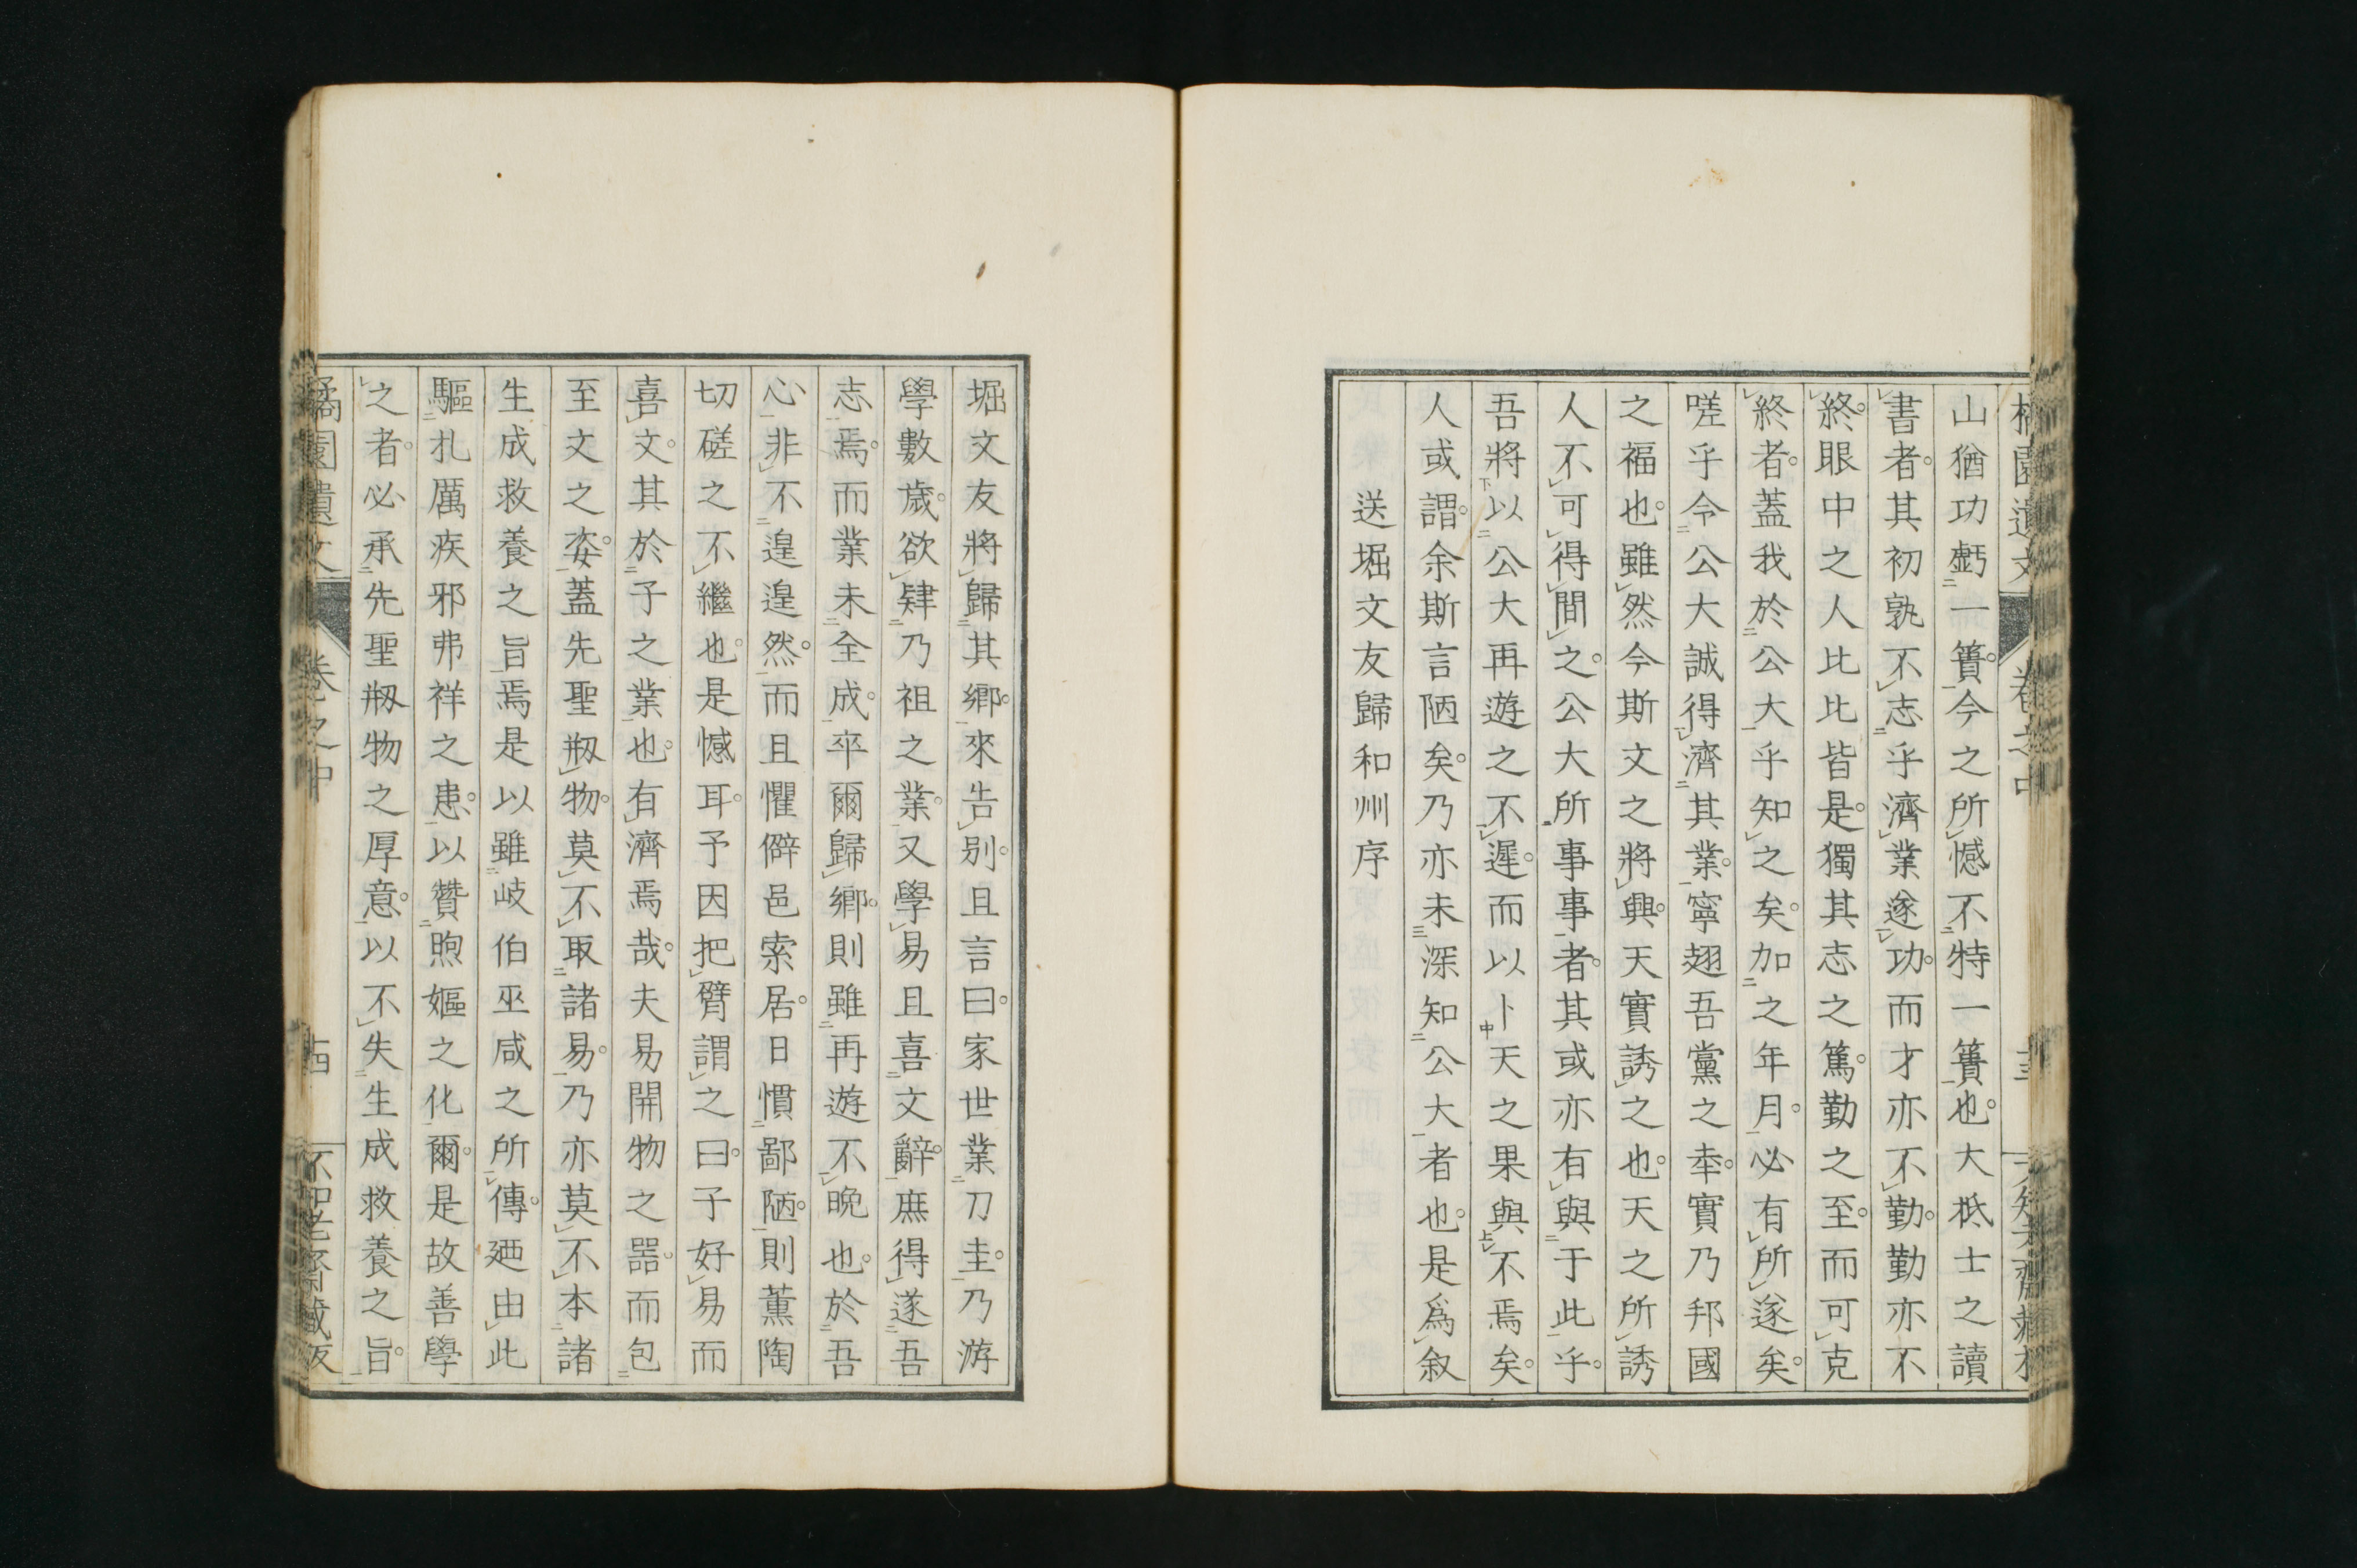 山猶功虧一簣。今之所憾不特一簣也。大柢士之讀
書者。其初孰不志乎濟業遂功。而才亦不勤。勤亦不
終。眼中之人比比皆是。獨其志之篤。勤之至。而可克
終者。蓋我於公大乎知之矣。加之年月。必有所遂矣。
嗟乎令公大誠得濟其業。寧翅吾黨之幸。實乃邦國
之福也。雖然今斯文之將興。天實誘之也。天之所誘
人不可得間之。公大所事事者。其或亦有與于此乎。
吾將以公大再遊之不遲。而以卜天之果與不焉矣。
人或謂。余斯言陋矣。乃亦未深知公大者也。是爲叙
送堀文友歸和州序
堀文友將歸其鄉。來告別。且言曰。家世業刀圭。乃游
學數歲。欲肄乃祖之業。又學易且喜文辭。庶得遂吾
志焉。而業未全成。卒爾歸鄉。則雖再遊不晚也。於吾
心非不遑遑然。而且懼僻邑索居。日慣鄙陋。則薰陶
切磋之不繼也。是憾耳。予因把臂謂之曰。子好易而
喜文。其於子之業也。有濟焉哉。夫易開物之器。而包
至文之㚣。蓋先聖刱物。莫不取諸易。乃亦莫不本諸
生成救養之旨焉。是以雖岐伯巫咸之所傳。廼由此
驅札厲疾邪弗祥之患。以贊煦嫗之化爾。是故善學
之者。必承先聖刱物之厚意。以不失生成救養之旨。
橘園遺文 卷之中 十四